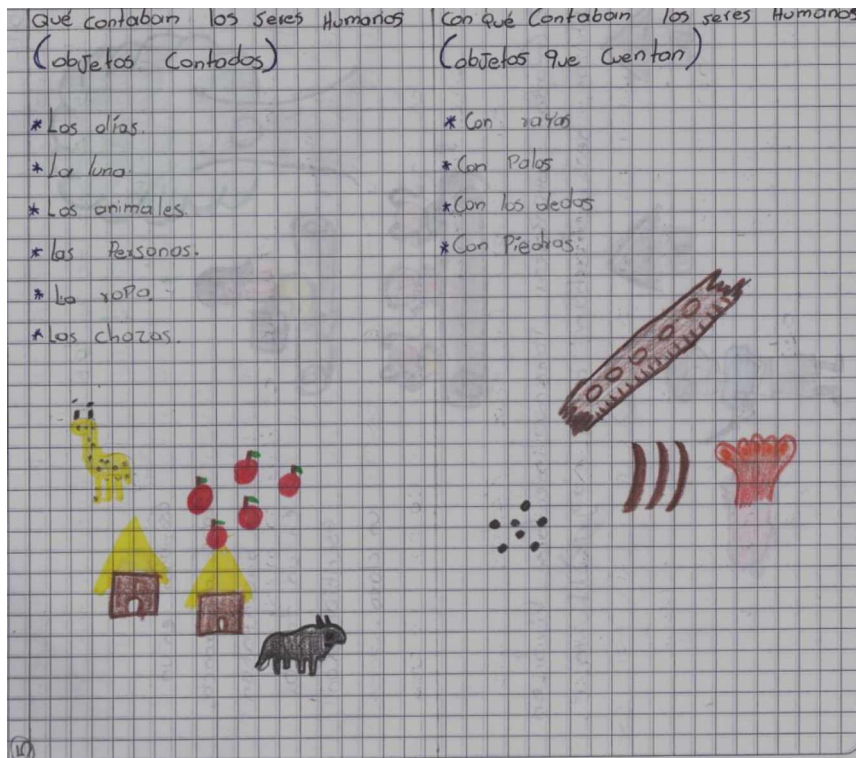 Qué contaban los seres Humanos
(objetos Contados)
* Los días.
* La luna.
* Los animales.
* las Personas.
* La ropa.
* Las chozas.
Con qué Contaban los seres Humanos
(objetos que Cuentan)
* Con rayas
* Con Palos
* Con los dedos
* Con Piedras.